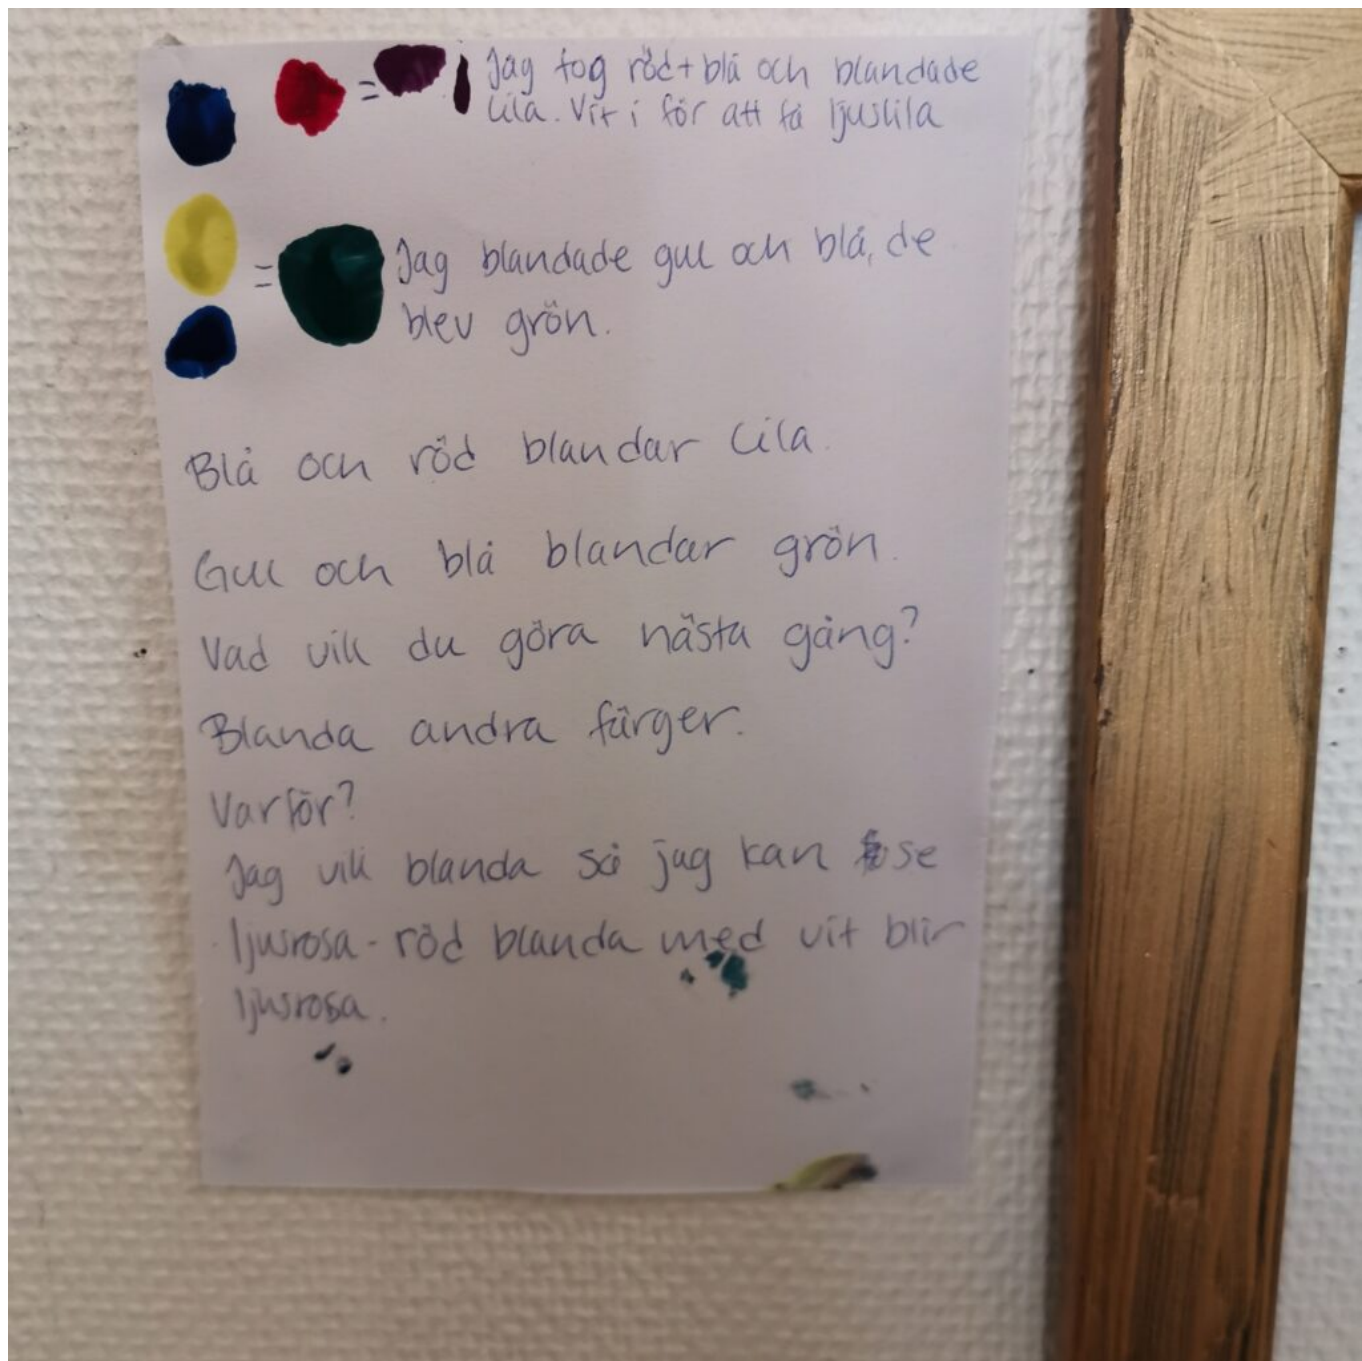 = Jag tog röd+blå och blandade
lila. Vit i för att få ljuslila
= Jag blandade gul och blå, de
blev grön.
Blå och röd blandar lila.
Gul och blå blandar grön.
Vad vill du göra nästa gång?
Blanda andra färger.
Varför?
Jag vill blanda så jag kan se
ljusrosa - röd blanda med vit blir
ljusrosa.